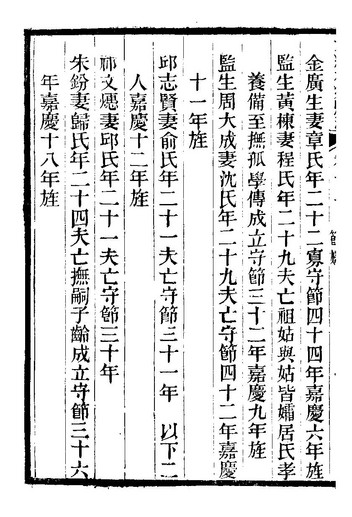 金廣生妻章氏年二十二寡守節四十四年嘉慶六年旌
監生黃棟妻程氏年二十九夫亡祖姑與姑皆孀居氏孝
養備至撫孤學傳成立守節三十二年嘉慶九年旌
監生周大成妻沈氏年二十九夫亡守節四十二年嘉慶
十一年旌
邱志賢妻俞氏年二十一夫亡守節三十一年 以下二
人嘉慶十二年旌
祁文
妻邱氏年二十一夫亡守節三十年
朱鈖妻歸氏年二十四夫亡撫嗣子齡成立守節三十六
年嘉慶十八年旌